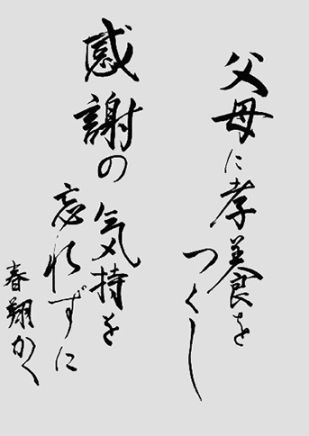 父母に孝養を
つくし
感謝の気持を
忘れずに
春翔かく